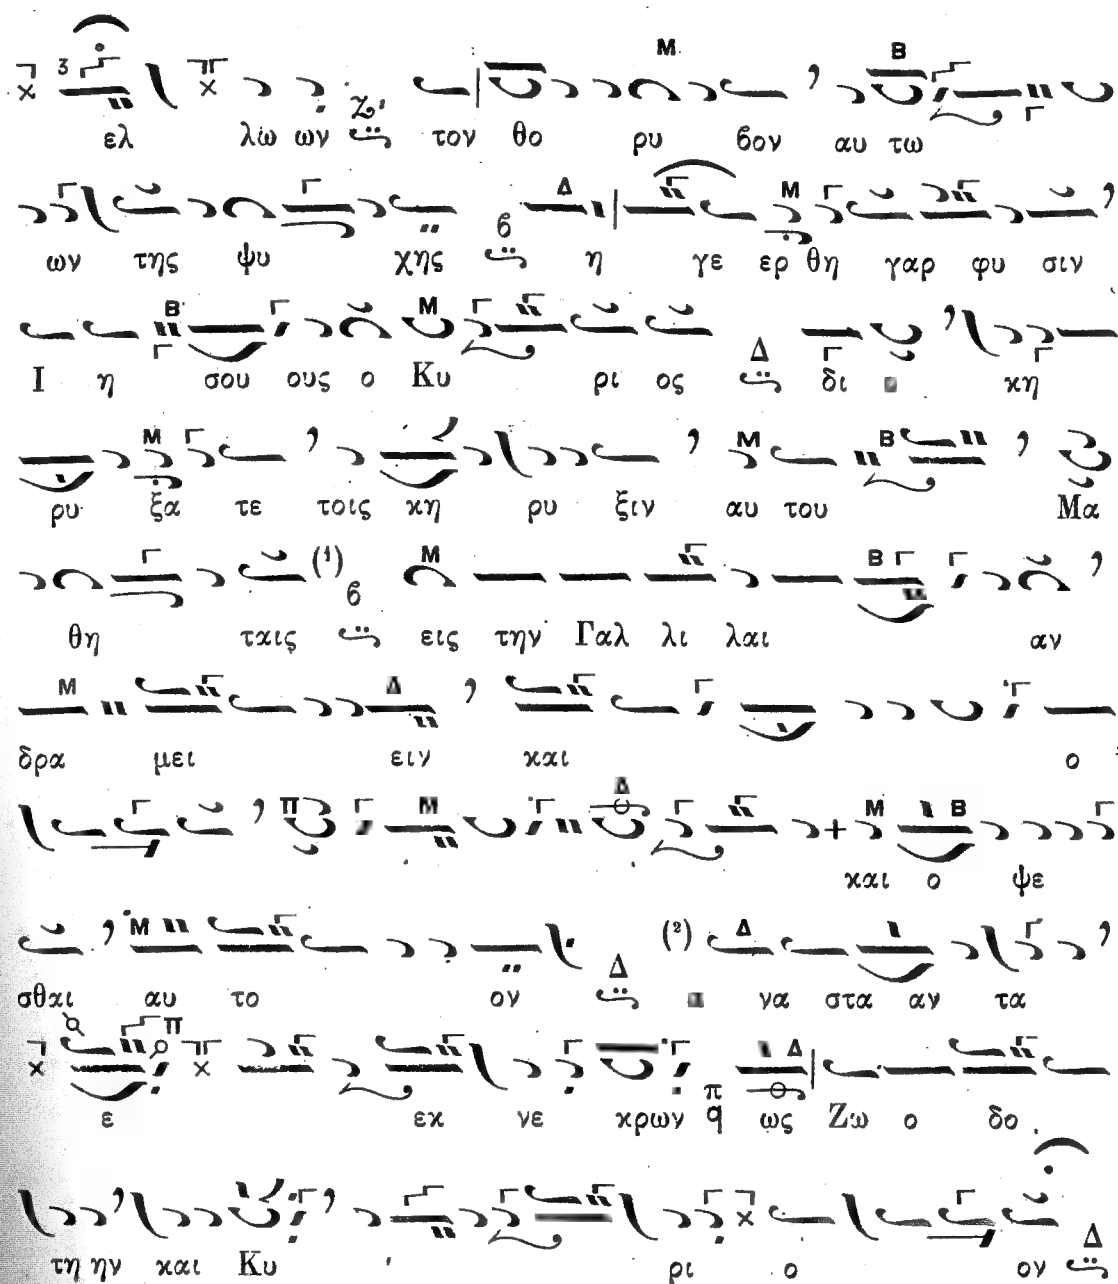 ελ λω ων τον θο ρυ βον αυ τω
ων της ψυ χης η γε ερ θη γαρ φυ σιν
Ι η σου ους ο Κυ ρι ος δι κη
ρυ ξα τε τοις κη ρυ ξιν αυ του Μα
θη ταις (1) εις την Γαλ λι λαι αν
δρα μει ειν και ο
και ο ψε
σθαι αυ το ον (2) να στα αν τα
ε εκ νε κρων ως Ζω ο δο
τη ην και Κυ ρι ο ον